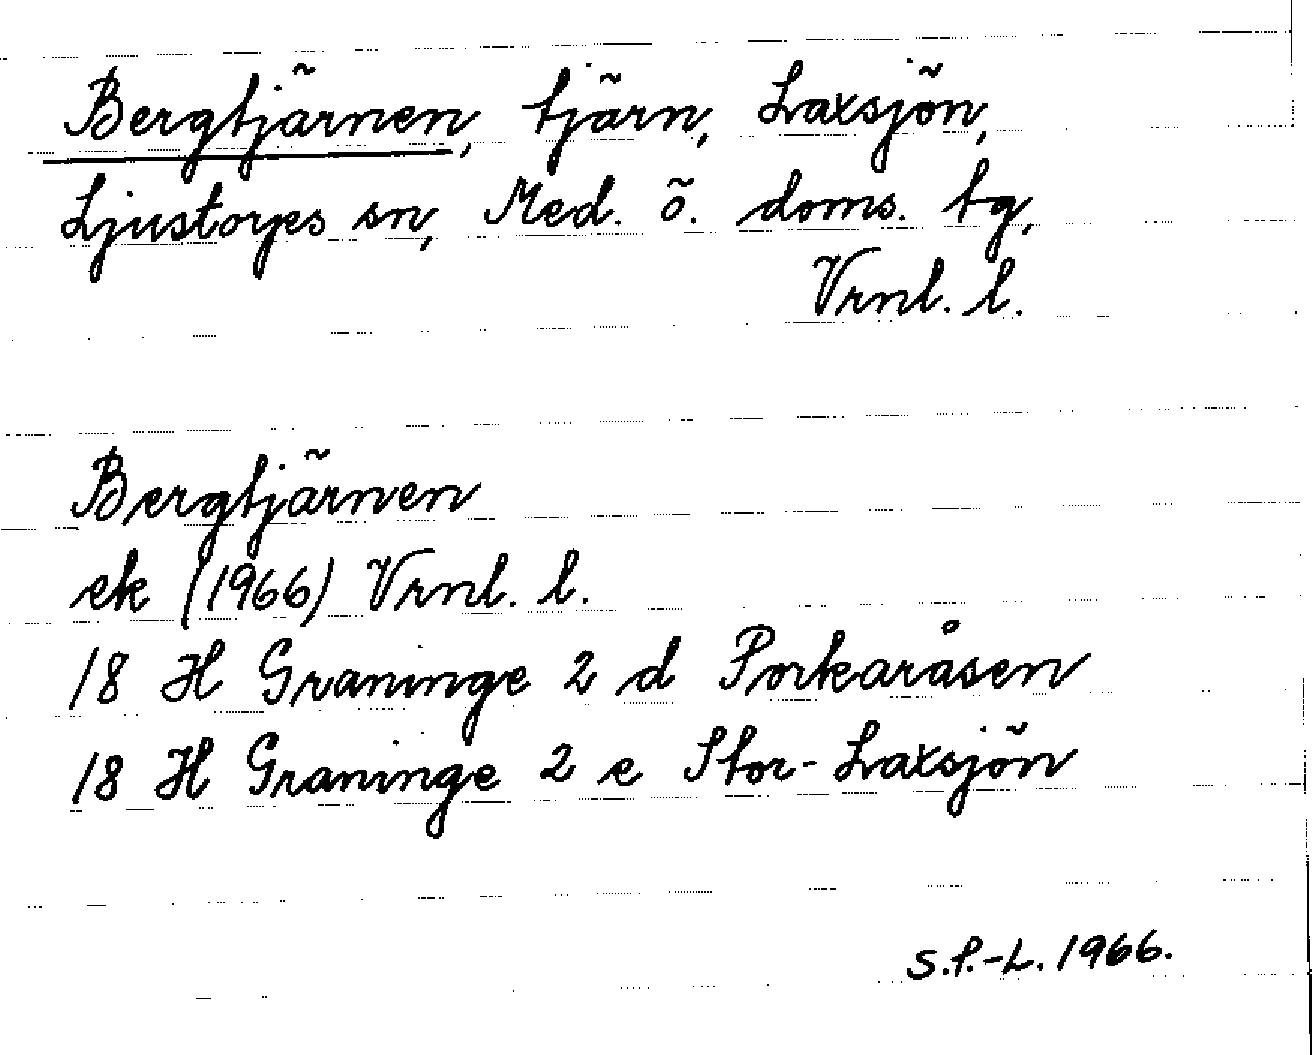 Bergtjärnen, tjärn, Laxsjön,
Ljustorps sn, Med. ö. doms. tg,
Vrnl. l.
Bergtjärnen
ek (1966) Vrnl. l.
18 H Graninge 2 d Porkaråsen
18 H Graninge 2 e Stor-Laxsjön
S.P.-L. 1966.